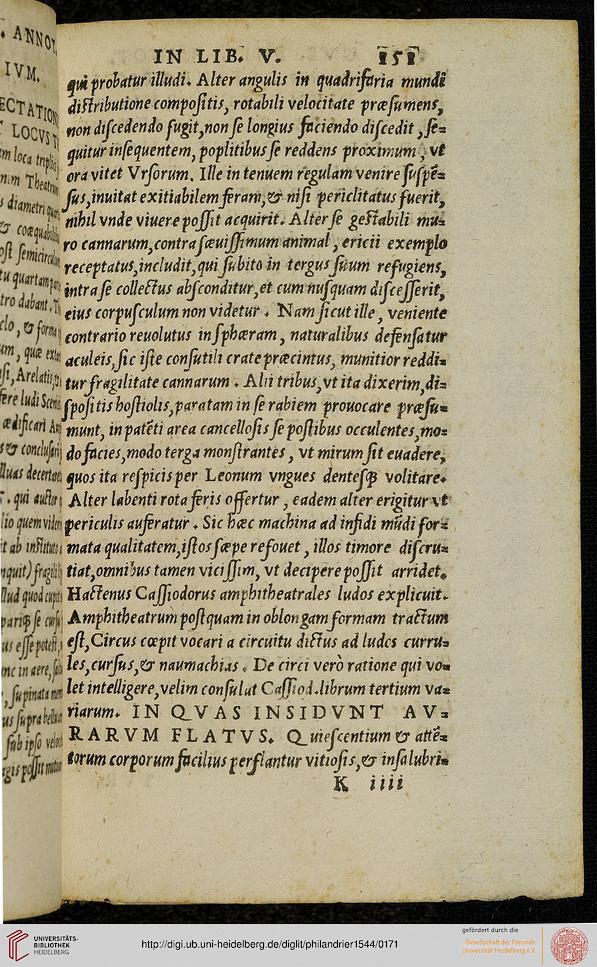 . ANNOT.
IVM.
ECTATION
LOCVS T
IN LIB. V. 151
qui probatur illudi. Alter angulis in quadrifaria mundi
distributione compositis, rotabili velocitate præsumens,
non discedendo fugit, non se longius faciendo discedit, se=
quitur insequentem, poplitibus se reddens proximum, vt
ora vitet Vrsorum. Ille in tenuem regulam venire suspē=
sus, inuitat exitiabilem feram, & nisi periclitatus fuerit,
nihil vnde viuere possit acquirit. Alter se gestabili mu=
ro cannarum, contra sæuissimum animal, ericii exemplo
receptatus, includit, qui subito in tergus suum refugiens,
intra se collectus absconditur, et cum nusquam discesserit,
eius corpusculum non videtur. Nam sicut ille, veniente
contrario reuolutus in sphæram, naturalibus defensatur
aculeis, sic iste consutili crate præcintus, munitior reddi=
tur fragilitate cannarum. Alii tribus, vt ita dixerim, di=
spositis hostiolis, paratam in se rabiem prouocare præsu=
munt, in patēti area cancellosis se postibus occulentes, mo=
do facies, modo terga monstrantes, vt mirum sit euadere,
quos ita respicis per Leonum vngues dentesq; volitare.
Alter labenti rota feris offertur, eadem alter erigitur vt
periculis auferatur. Sic hæc machina ad infidi mūdi for=
mata qualitatem, istos sæpe refouet, illos timore discru=
tiat, omnibus tamen vicissim, vt decipere possit arridet.
Hactenus Cassiodorus amphitheatrales ludos explicuit.
Amphitheatrum postquam in oblongam formam tractum
est, Circus cœpit vocari a circuitu dictus ad ludos curru=
les, cursus, & naumachias. De circi verò ratione qui vo=
let intelligere, velim consulat Cassiod. librum tertium va=
riarum. IN QVAS INSIDVNT AV=
RARVM FLATVS. Quiescentium & attē=
torum corporum facilius perflantur vitiosis, & insalubri=
K iiii
UNIVERSITÄTS-
BIBLIOTHEK
HEIDELBERG
http://digi.ub.uni-heidelberg.de/diglit/philandrier1544/0171
gefördert durch die
Gesellschaft der Freunde
Universität Heidelberg e.V.